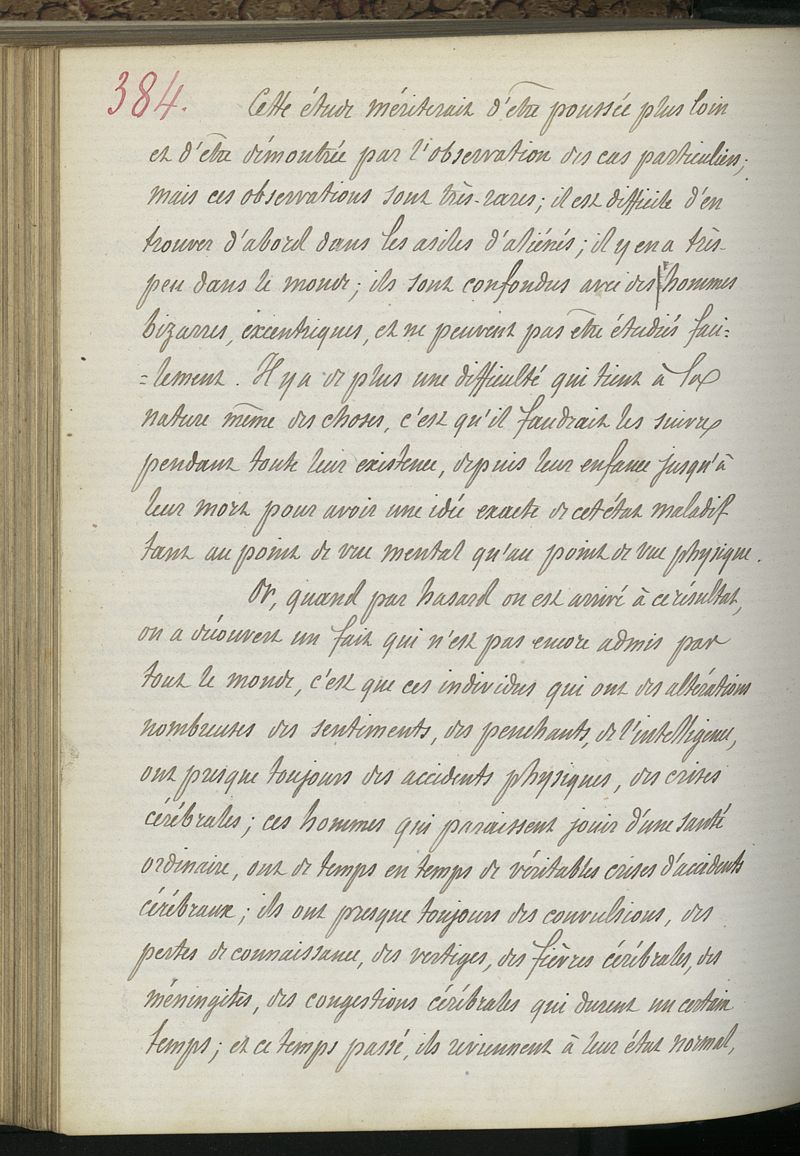 384.
Cette étude mériterait d'être poussée plus loin
et d'être démontrée par l'observation des cas particuliers;
mais ces observations sont très-rares; il est difficile d'en
trouver d'abord dans les asiles d'aliénés; il y en a très-
peu dans le monde; ils sont confondus avec des hommes
bizarres, excentriques, et ne peuvent pas être étudiés faci=
=lement. Il y a de plus une difficulté qui tient à la
nature même des choses, c'est qu'il faudrait les suivre
pendant toute leur existence, depuis leur enfance jusqu'à
leur mort pour avoir une idée exacte de cet état maladif
tant au point de vue mental qu'au point de vue physique.
Or, quand par hasard on est arrivé à ce résultat,
on a découvert un fait qui n'est pas encore admis par
tout le monde, c'est que ces individus qui ont des altérations
nombreuses des sentiments, des penchants, de l'intelligence,
ont presque toujours des accidents physiques, des crises
cérébrales; ces hommes qui paraissent jouir d'une santé
ordinaire, ont de temps en temps de véritables crises d'accidents
cérébraux; ils ont presque toujours des convulsions, des
pertes de connaissance, des vertiges, des fièvres cérébrales, des
méningites, des congestions cérébrales qui durent un certain
temps; et ce temps passé, ils reviennent à leur état normal,